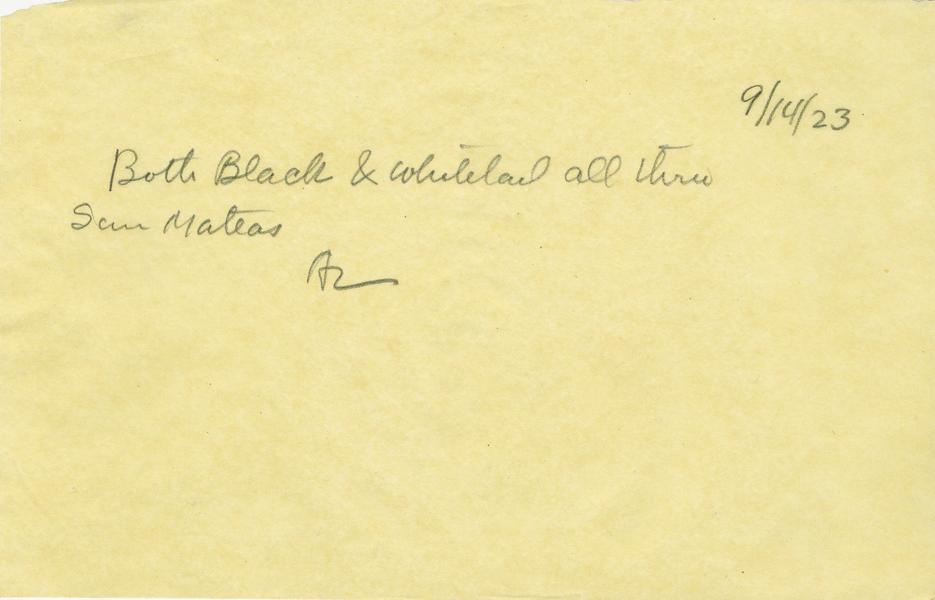 9/14/23
Both Black & Whitetail all thru
San Mateos
AL